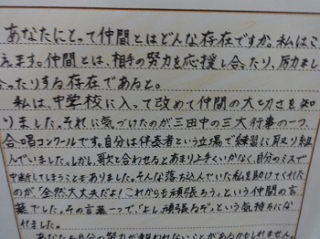 あなたにとって仲間とはどんな存在ですか。私はこ
えます。仲間とは、相手の努力を応援し合ったり、励まし
合ったりする存在であると。
私は、中学校に入って改めて仲間の大切さを知
りました。それに気づけたのが三田中の三大行事の一つ、
合唱コンクールです。自分は伴奏者という立場で練習に取り組
んでいました。しかし、歌と合わせるとあまり上手くいかなく、自分のミスで
中断してしまうこともありました。そんな落ち込んでいた私を助けてくれた
のが、「全然大丈夫だよ!これからも頑張ろう。」という仲間の言
葉でした。その言葉一つで、「よし、頑張るぞ。」という気持ちにな
れました。
あなたも自分の努力が報われないことがあるかもしれません。